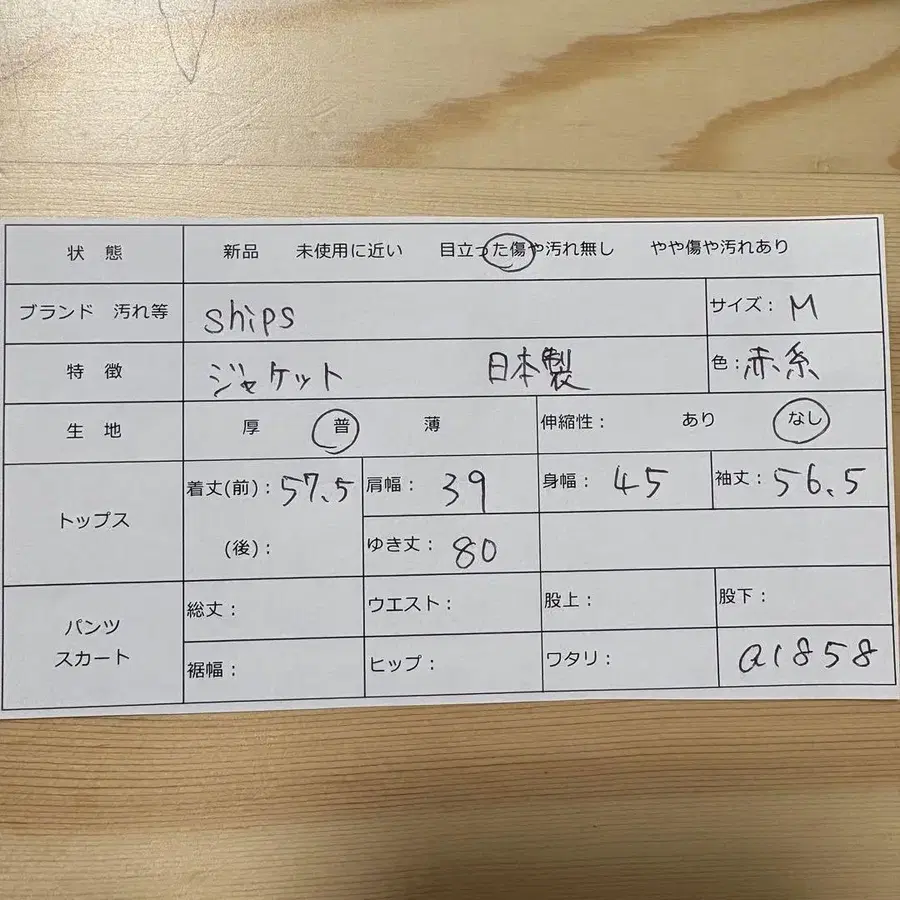 状 態 新品 未使用に近い 目立った傷や汚れ無し やや傷や汚れあり
ブランド 汚れ等 ships サイズ： M
特 徴 ジャケット 日本製 色： 赤糸
生 地 厚 普 薄 伸縮性： あり なし
トップス 着丈(前)： 57.5 肩幅： 39 身幅： 45 袖丈： 56.5
(後)： ゆき丈： 80
パンツ スカート
総丈： ウエスト： 股上： 股下：
裾幅： ヒップ： ワタリ： a1858